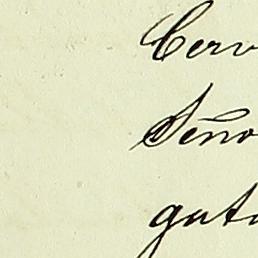 Cerv
Seño
guta